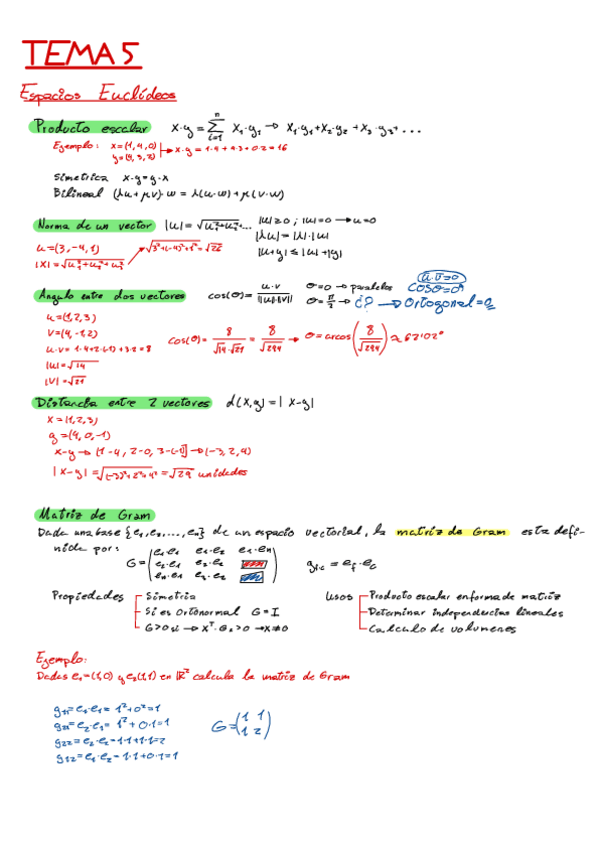 TEMA 5
Espacios Euclídeos
Producto escalar x·y = ∑ᵢ₌₁ⁿ x₁·y₁ → x₁·y₁+x₂·y₂+x₃·y₃+...
Ejemplo: x=(1,4,0)
y=(4,3,2) → x·y = 1·4+4·3+0·2=16
Simetrica x·y=y·x
Bilineal (λu+μv)·w = λ(u·w)+μ(v·w)
Norma de un vector |u| = √u₁²+u₂²+... |u|≥0 ; |u|=0 → u=0
|λu|=|λ|·|u|
|u+y| ≤ |u|+|y|
u=(3,-4,1) √3²+(-4)²+1² = √26
|x|=√u₁²+u₂²+u₃²
Angulo entre dos vectores cos(θ)= u·v / ||u|·|v|| θ=0 → paralelos
θ=π/2 → ¿? → Ortogonal=0
u·v=0
cosθ=0
u=(1,2,3)
v=(4,-1,2)
u·v= 1·4+2·(-1)+3·2=8
|u|=√14
|v|=√21
cos(θ)= 8/√14·√21 = 8/√294 → θ=arcos(8/√294) ≈ 62'02°
Distancia entre 2 vectores d(x,y)=| x-y|
x=(1,2,3)
y=(4,0,-1)
x-y → [1-4, 2-0, 3-(-1)] → (-3,2,4)
|x-y|=√(-3)²+2²+4² = √29 unidades
Matriz de Gram
Dada una base {e₁,e₂,...,eₙ} de un espacio vectorial, la matriz de Gram esta defi-
nida por:
G= (e₁·e₁ e₁·e₂ e₁·eₙ
e₂·e₁ e₂·e₂
eₙ·e₁ eₙ·e₂)
Propiedades Simetria
Si es ortonormal G=I
G>0 si → xᵀ·G·x>0 → x≠0
Usos Producto escalar en forma de matriz
Determinar independencias lineales
Calculo de volumenes
Ejemplo:
Dadas e₁=(1,0) y e₂(1,1) en ℝ² calcula la matriz de Gram
g₁₁=e₁·e₁= 1²+0²=1
g₂₁=e₂·e₁= 1²+0·1=1
g₂₂=e₂·e₂=1·1+1·1=2
g₁₂=e₁·e₂=1·1+0·1=1
G=(1 1
1 2)